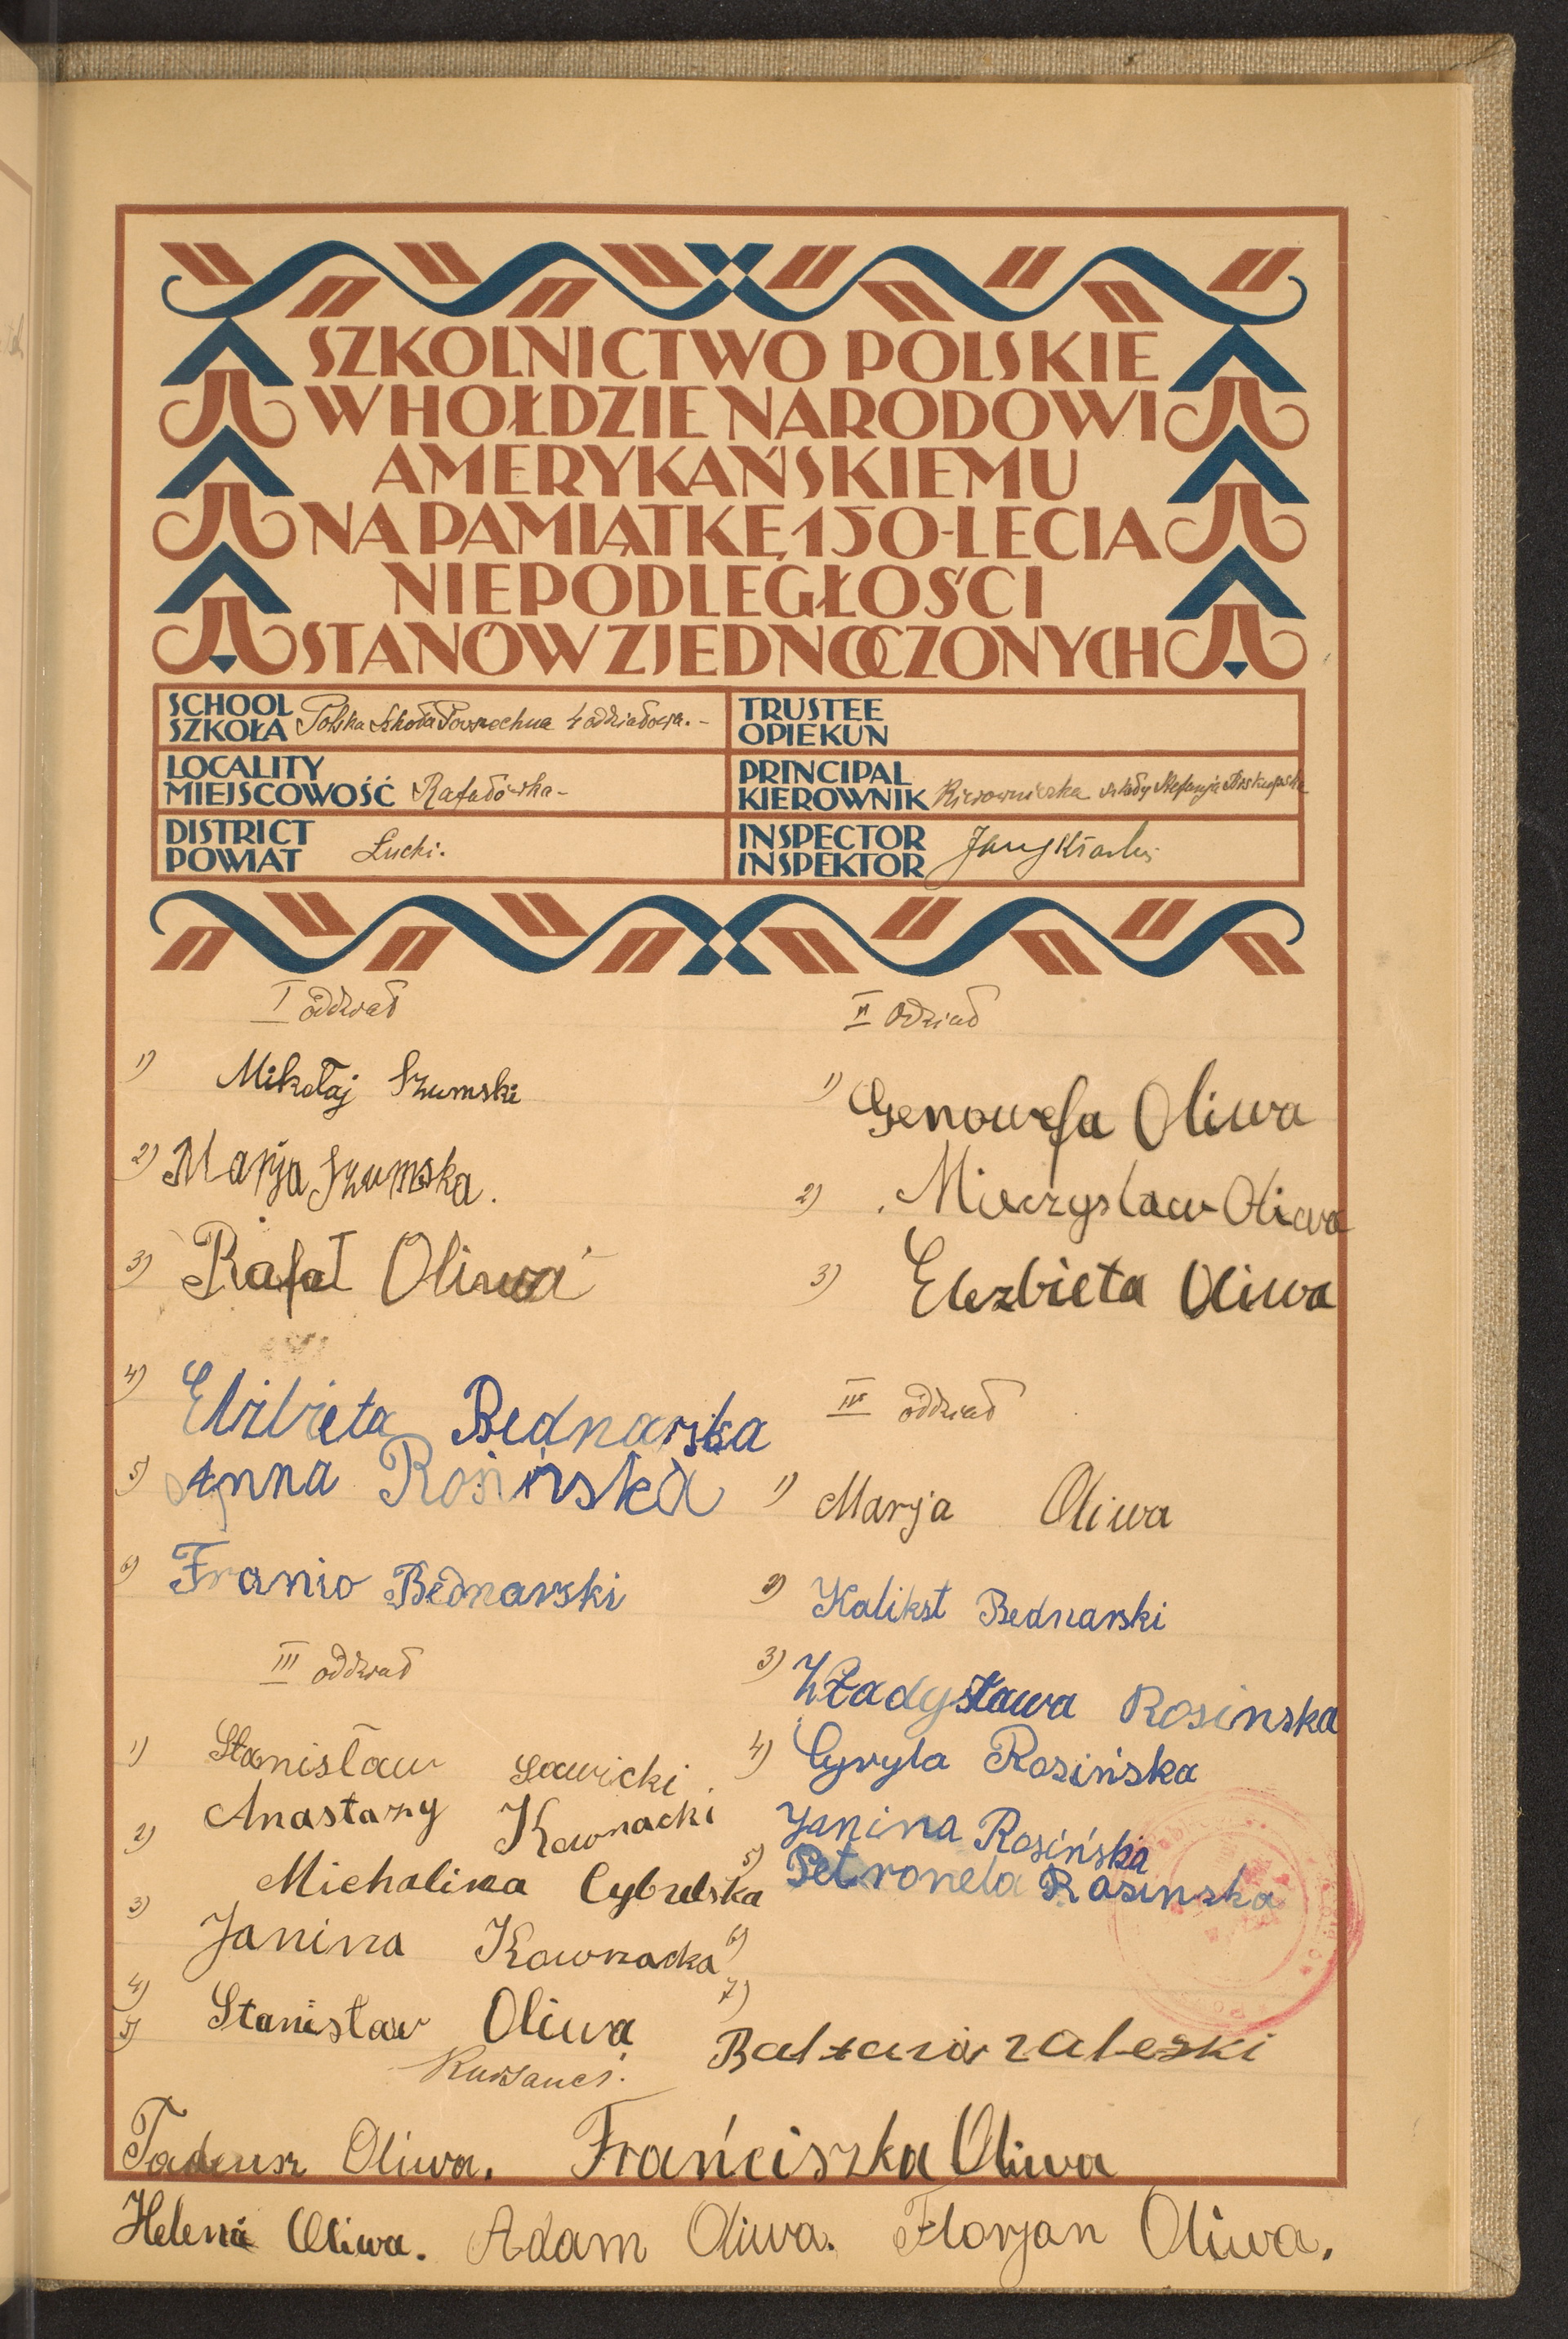 SZKOLNICTWO POLSKIE
W HOŁDZIE NARODOWI
AMERYKAŃSKIEMU
NA PAMIĄTKĘ 150-LECIA
NIEPODLEGŁOŚCI
STANÓW ZJEDNOCZONYCH
SCHOOL
SZKOŁA Polska Szkoła Powszechna 4 oddziałowa.-
LOCALITY
MIEJSCOWOŚĆ Rafałówka-
DISTRICT
POWIAT Łucki.
TRUSTEE
OPIEKUN
PRINCIPAL
KIEROWNIK Kierowniczka szkoły Stefanja
INSPECTOR
INSPEKTOR
I oddział
1) Mikołaj Szumski
2) Marja Szumska.
3) Rafał Oliwa
4) Elżbieta Bednarska
5) Anna Rosińska
6) Franio Bednarski
III oddział
1) Stanisław Sawicki.
2) Anastazy Kownacki
3) Michalina Cybulska
4) Janina Kownacka
5) Stanisław Oliwa
II Odział
1) Genowefa Oliwa
2) Mieczysław Oliwa
3) Elezbieta Oliwa
IV oddział
1) Marja Oliwa
2) Kalikst Bednarski
3) Władysława Rosinska
4) Cyryla Rosińska
5) Janina Rosińska
6) Petronela Rosinska
7)
Kursanci.
Baltazar zaleski
Tadeusz Oliwa. Frańciszka Oliwa
Helena Oliwa. Adam Oliwa. Florjan Oliwa.